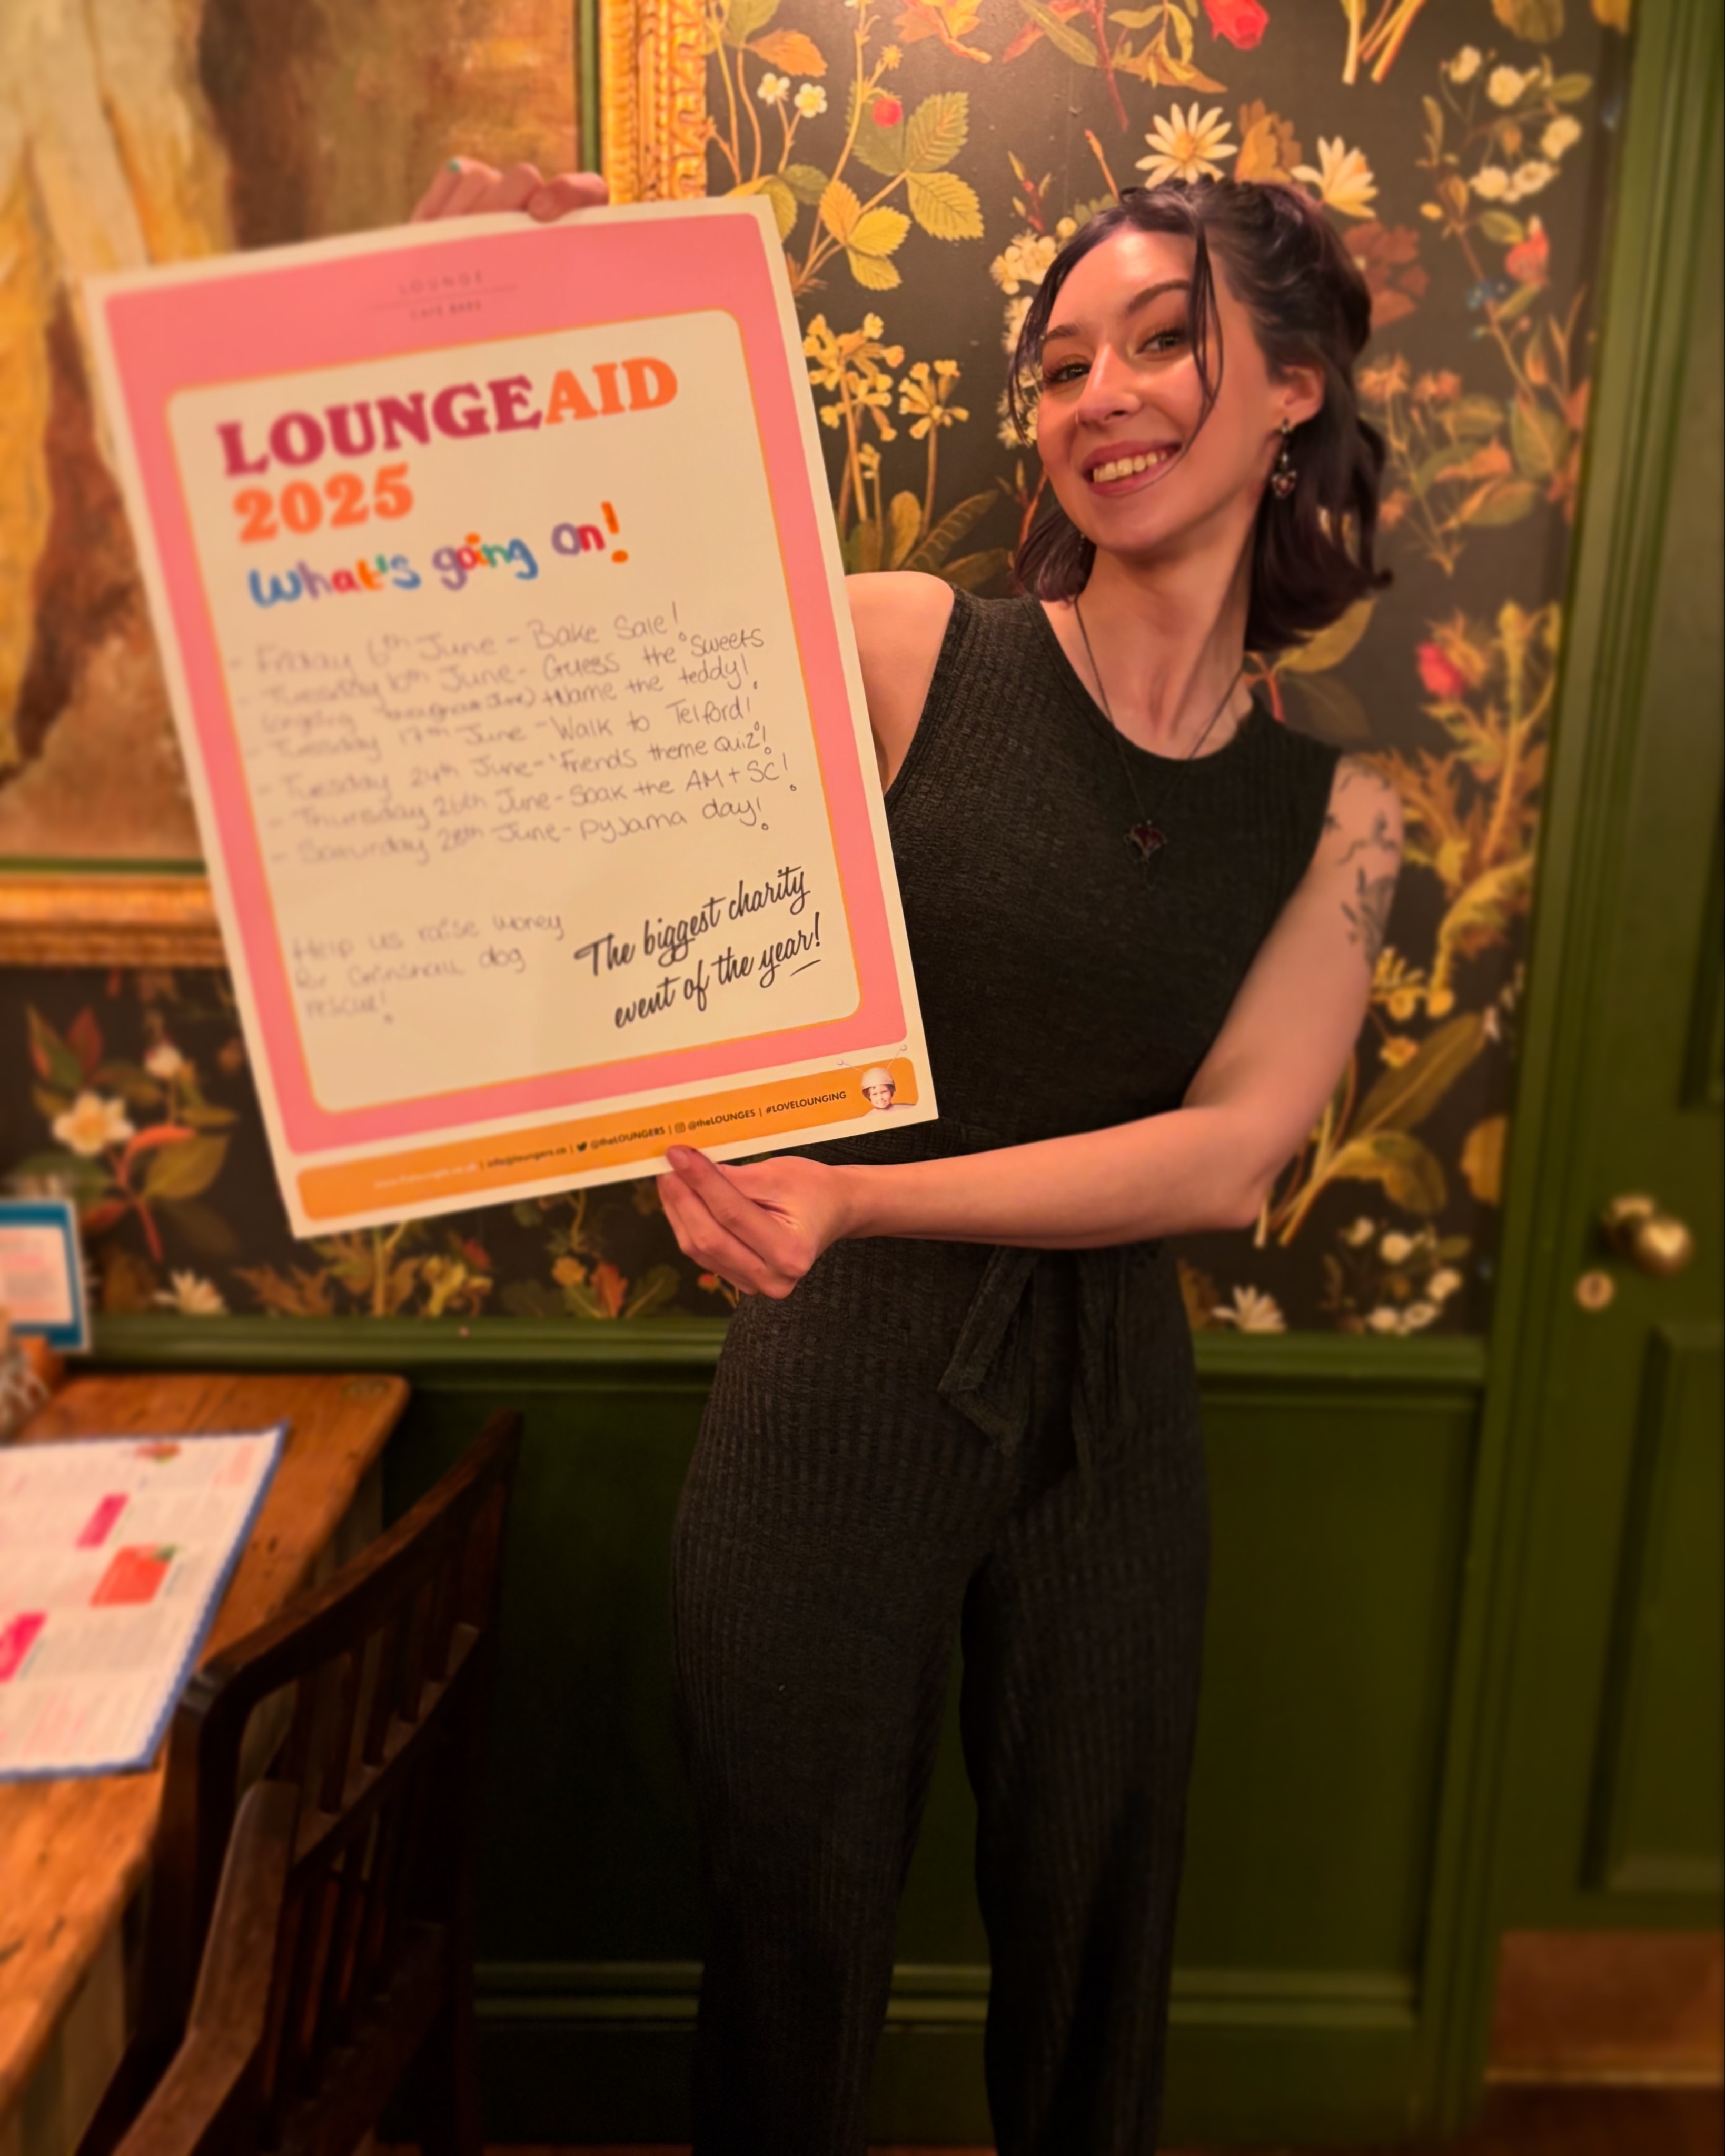 LOUNGE
CAFE BARS
LOUNGEAID
2025
What's going on!
- Friday 6th June - Bake Sale!
- Tuesday 10th June - Guess the sweets
(ongoing throughout June) + Name the teddy!
- Tuesday 17th June - Walk to Telford!
- Tuesday 24th June - 'Friends theme Quiz'!
- Thursday 26th June - Soak the AM + SC!
- Saturday 28th June - Pyjama day!
Help us raise money
for Grinshill dog
rescue!
The biggest charity
event of the year!
| info@loungers.co | @theLOUNGERS | @theLOUNGES | #LOVELOUNGING